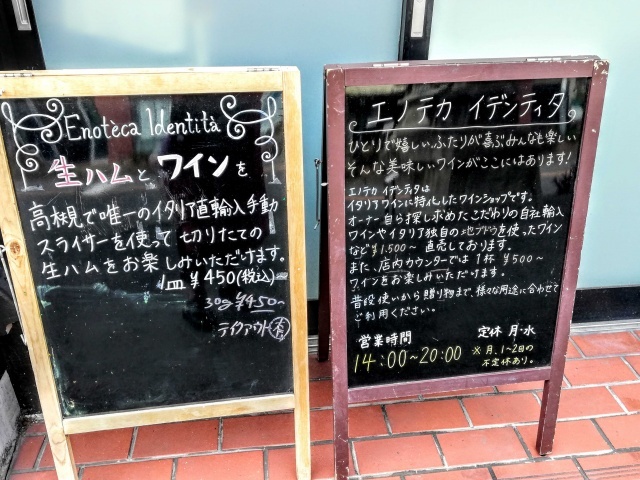 Enotèca Identità
生ハムと ワインを
高槻で唯一のイタリア直輸入手動
スライサーを使って切りたての
生ハムをお楽しみいただけます。
1皿 ¥450(税込)
30g ¥450~
テイクアウト
エノテカ イデンティタ
ひとりで嬉しい、ふたりが喜ぶ、みんなも楽しい
そんな美味しいワインがここにはあります!
エノテカ イデンティタは
イタリアワインに特化したワインショップです。
オーナー自ら探し求めたこだわりの自社輸入
ワインやイタリア独自の地ブドウを使ったワイン
など¥1,500~ 直売しております。
また、店内カウンターでは1杯 ¥500~
ワインをお楽しみいただけます。
普段使いから贈り物まで、様々な用途に合わせて
ご利用ください。
営業時間
14:00~20:00
定休 月・水
※月、1~2日の
不定休あり。